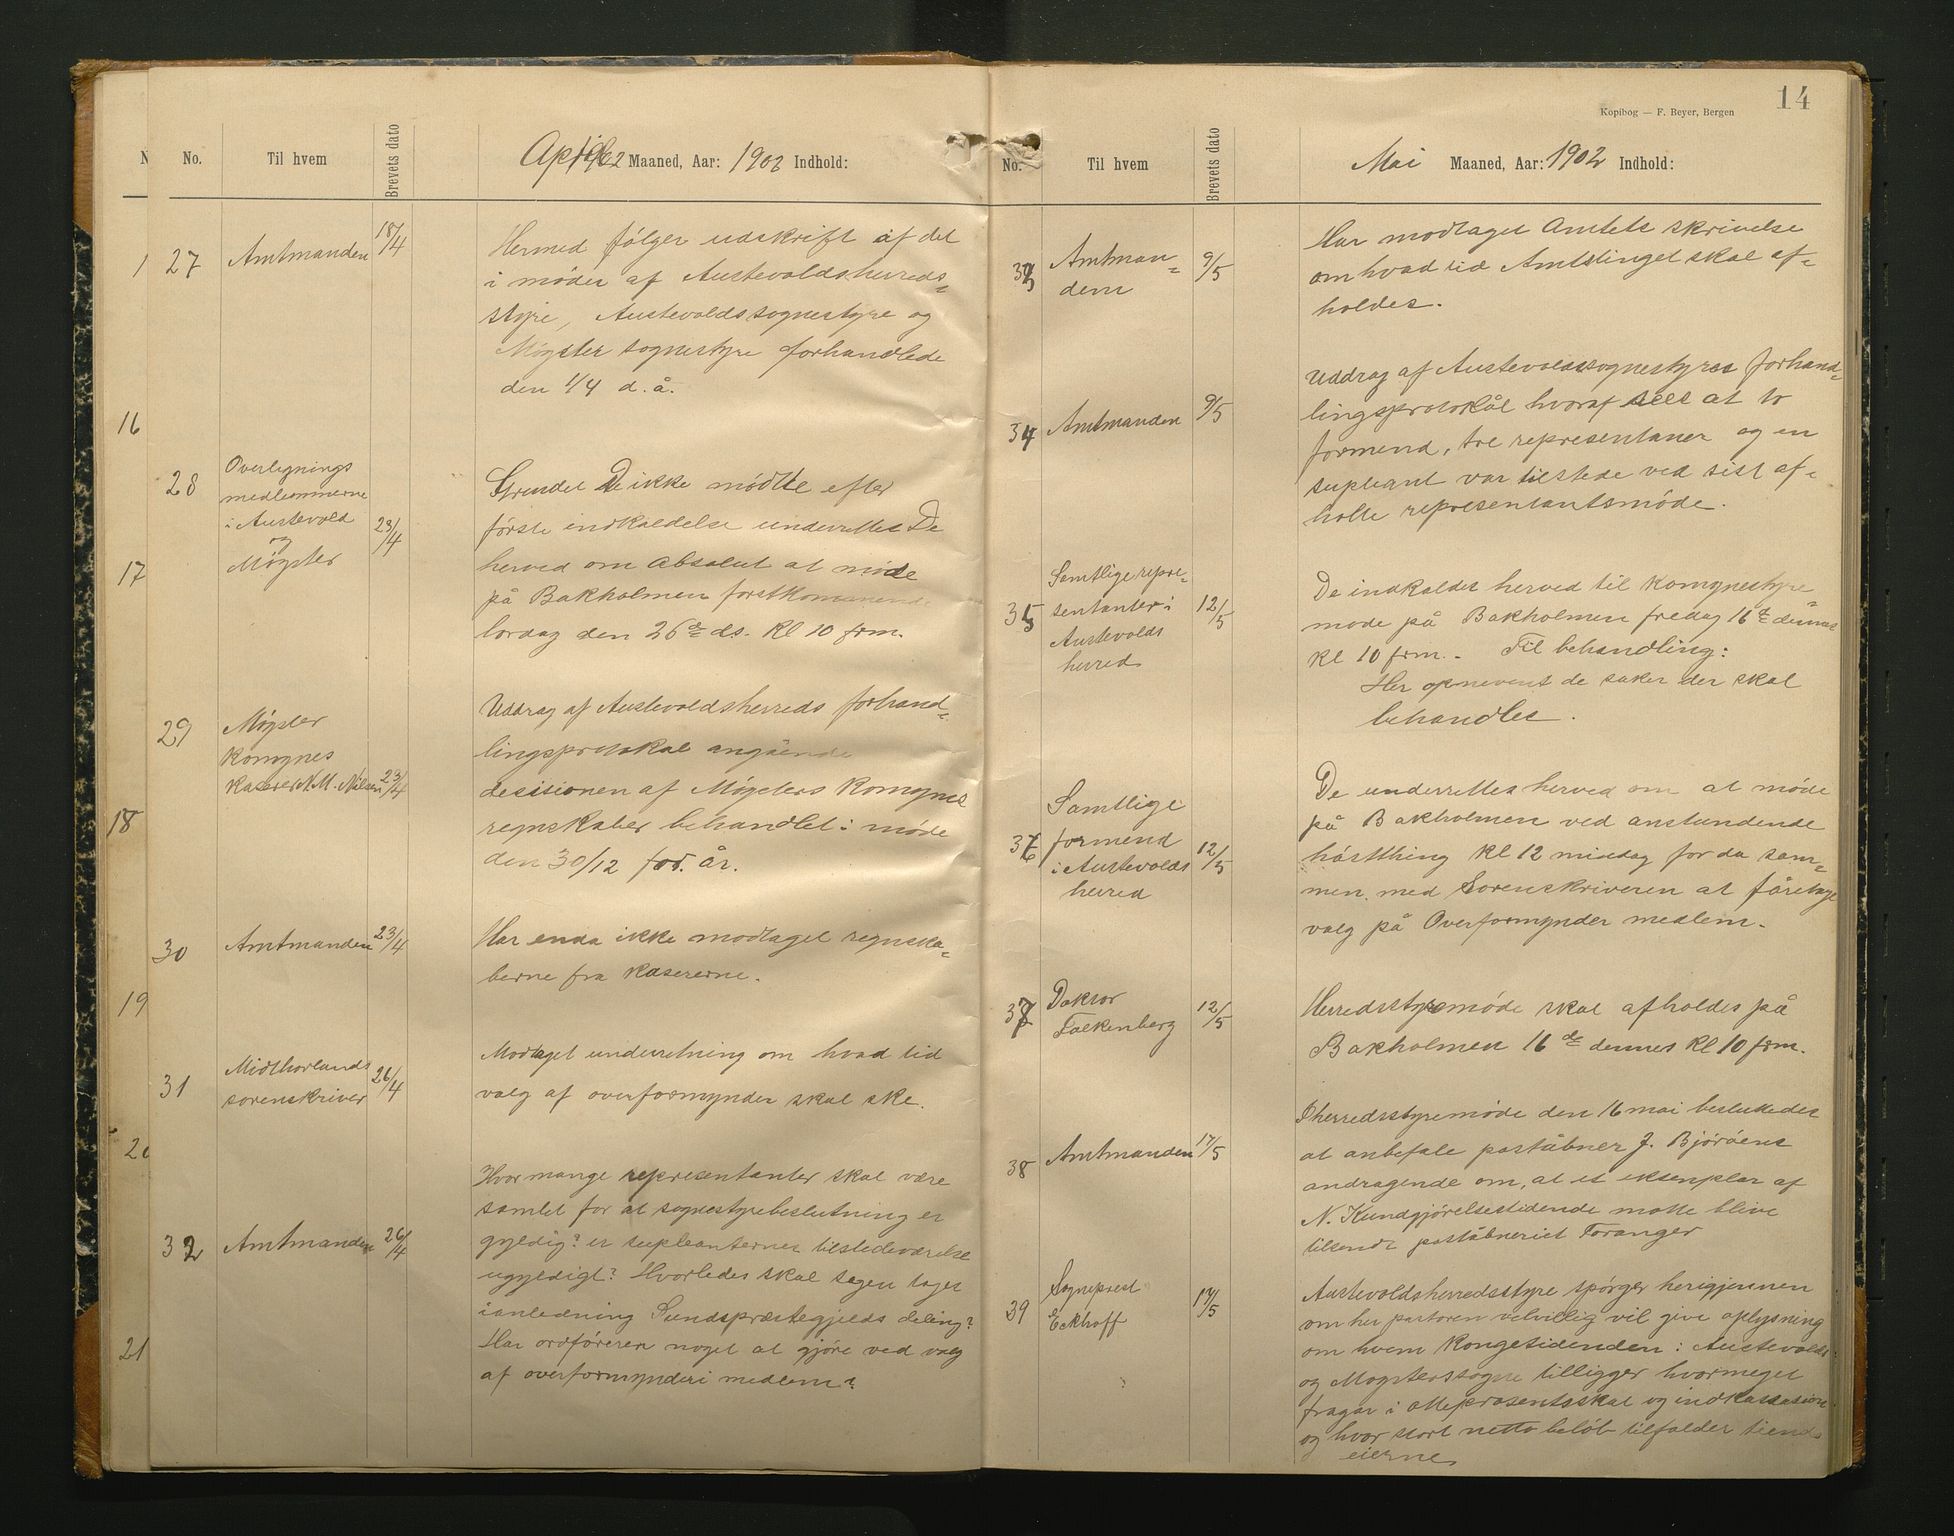 14
Kopibog — F. Beyer, Bergen
No. Til hvem Brevets dato April Maaned, Aar: 1902 Indhold:
27 Amtmanden 18/4
Hermed følger udskrift af det
i møder af Austevoldsherreds-
styre, Austevoldssognestyre og
Møgster sognestyre forhandlede
den 1/4 d. å.
28 Overlignings
medlemmerne
i Austevold
og
Møgster
23/4
Grundet De ikke mødte efter
første indkaldelse underrettes De
herved om absolut at møde
på Bakholmen førstkommende
lørdag den 26de ds. kl 10 frm.
29 Møgster
komgnes
kaserer N. M. Nilsen 23/4
Uddrag af Austevoldsherreds forhand-
lingsprotokal angående
desisionen af Møgsters komgnes
regnskaber behandlet i møde
den 30/12 for. år.
30 Amtmanden 23/4
Har enda ikke modtaget regnska-
berne fra kasererne.
31 Midthorlands
sorenskriver
26/4
Modtaget underretning om hvad tid
valg af overformynder skal ske.
32 Amtmanden 26/4
Hvor mange representanter skal være
samlet for at sognestyrebeslutning er
gyldig? er supleanternes tilstedeværelse
ugyldigt? Hvorledes skal sagen tages
i anledning Sundspræstegjelds deling?
Har ordføreren noget at gjøre ved valg
af overformynderi medlem?
16
17
18
19
21
No. Til hvem Brevets dato Mai Maaned, Aar: 1902 Indhold:
33 Amtman-
dem
9/5
Har modtaget Amtets skrivelse
om hvad tid Amtstinget skal af-
holdes.
34 Amtmanden 9/5
Uddrag af Austevoldssognestyres forhand-
lingsprotokål hvoraf sees at to
formend, tre representaner og en
supleant var tilstede ved sist af-
holte representantsmøde.
35 Samtlige repre-
sentanter i
Austevolds
herred
12/5
De indkaldes herved til komgnestyre
møde på Bakholmen fredag 16de dennes
kl 10 frm. - Til behandling:
Her opnevent de saker der skal
behandles.
36 Samtlige
formend
i Austevolds
herred
12/5
De underrettes herved om at møde
på Bakholmen ved anstundende
høstthing kl 12 middag for da sam-
men med Sorenskriveren at føretage
valg på Overformynder medlem.
37 Doktor
Falkenberg
12/5
Herredsstyremøde skal afholdes på
Bakholmen 16de dennes kl 10 frm.
38 Amtmanden 17/5
I herredsstyremøde den 16 mai beslutedes
at anbefale poståbner J. Bjørøens
andragende om, at et eksenplar af
N. Kundgjørelsestidende motte blive
tilsendt poståbneriet Toranger
39 Sogneprest
Eckhoff
17/5
Austevoldsherredsstyre spørger herigjennen
om her pastoren velvillig vil give oplysning
om hvem Kongetidenden i Austevolds
og Møgsterssogne tilligger hvormeget
fragår i otteprosentsskat og indkassasion
og hvor stort netto beløb tilfalder tiends
eierne